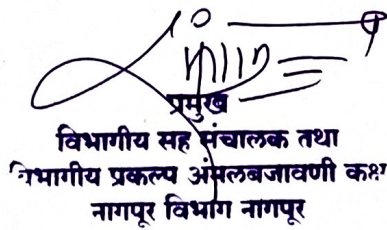 प्रमुख
विभागीय सह संचालक तथा
विभागीय प्रकल्प अंमलबजावणी कक्ष
नागपूर विभाग नागपूर